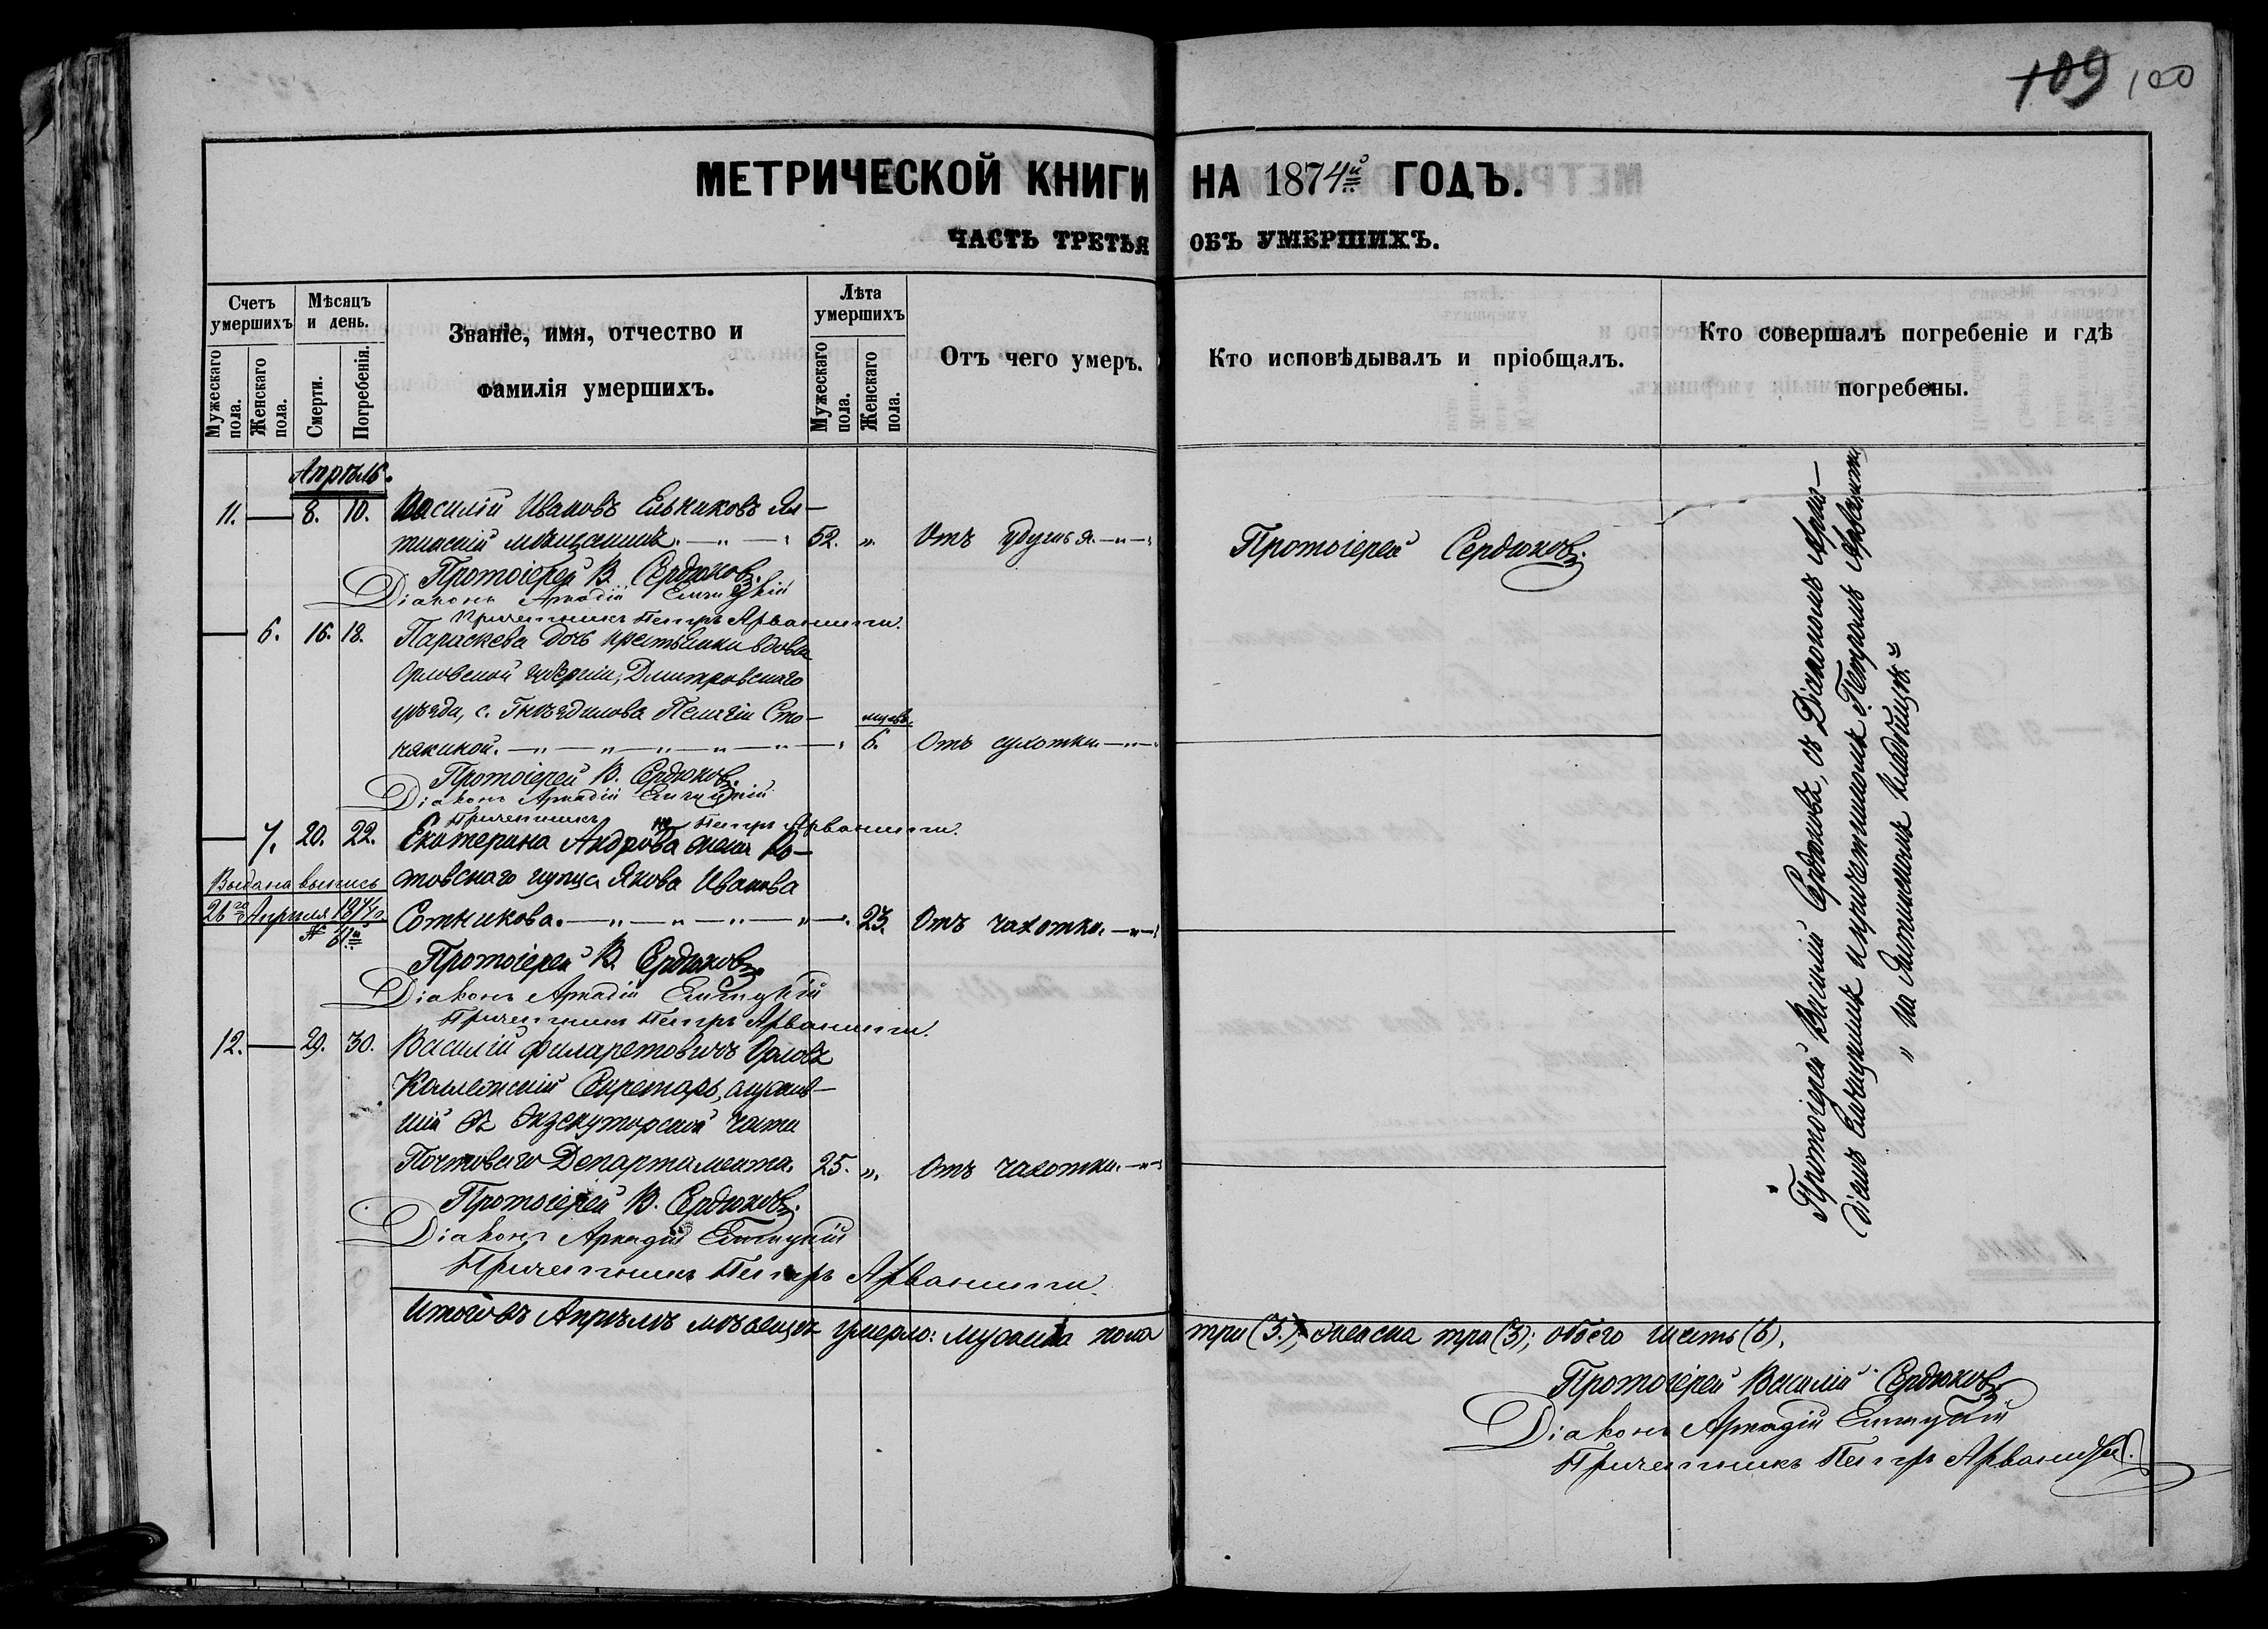 109 100
МЕТРИЧЕСКОЙ КНИГИ НА 1874й ГОДЪ.
ЧАСТЬ ТРЕТЬЯ ОБЪ УМЕРШИХЪ.
Счетъ умершихъ
Мужескаго пола.
Женскаго пола.
Мѣсяцъ и день.
Смерти.
Погребенія.
Званіе, имя, отчество и
фамилія умершихъ.
Лѣта умершихъ
Мужескаго пола.
Женскаго пола.
Отъ чего умеръ.
Кто исповѣдывалъ и пріобщалъ.
Кто совершалъ погребеніе и гдѣ
погребены.
Апрѣль.
11. — 8. 10. Василій Ивановъ Ельчиковъ Ял-
тинскій мѣщанинъ. 52. „ Отъ удушья.
Протоіерей Сердюковъ.
Протоіерей В. Сердюковъ.
Діаконъ Аркадій
Причетникъ Петръ Арванити.
— 6. 16. 18. Параскева дочь крестьянки вдовы
Орловской губерніи, Дмитровскаго
уѣзда, с. Гнѣздилова Пелагіи Сто-
някиной. мѣсяц. 6. Отъ сухотки.
Протоіерей В. Сердюковъ.
Діаконъ Аркадій
Причетникъ Петръ Арванити.
— 7. 20. 22. Екатерина Андрова жена Ро-
Выдана выпись
товскаго купца Якова Иванова
26го Апрѣля 1874 г.
Сотникова. 23. Отъ чахотки.
№ 61й
Протоіерей В. Сердюковъ.
Діаконъ Аркадій
Причетникъ Петръ Арванити.
12. — 29. 30. Василій Филаретовичъ Орловъ
Коллежскій Секретарь, служив-
шій въ Экзекуторской части
Почтоваго Департамента. 25. „ Отъ чахотки.
Протоіерей В. Сердюковъ.
Діаконъ Аркадій
Причетникъ Петръ Арванити.
Протоіерей Василій Сердюковъ, съ Діакономъ Арка-
діемъ и причетникомъ Петромъ Арванити
„ на Ялтинскомъ кладбищѣ. „
Итого въ Апрѣлѣ мѣсяцѣ умерло: мужска пола три (3.), женска три (3); обоего шесть (6).
Протоіерей Василій Сердюковъ
Діаконъ Аркадій
Причетникъ Петръ Арванити.